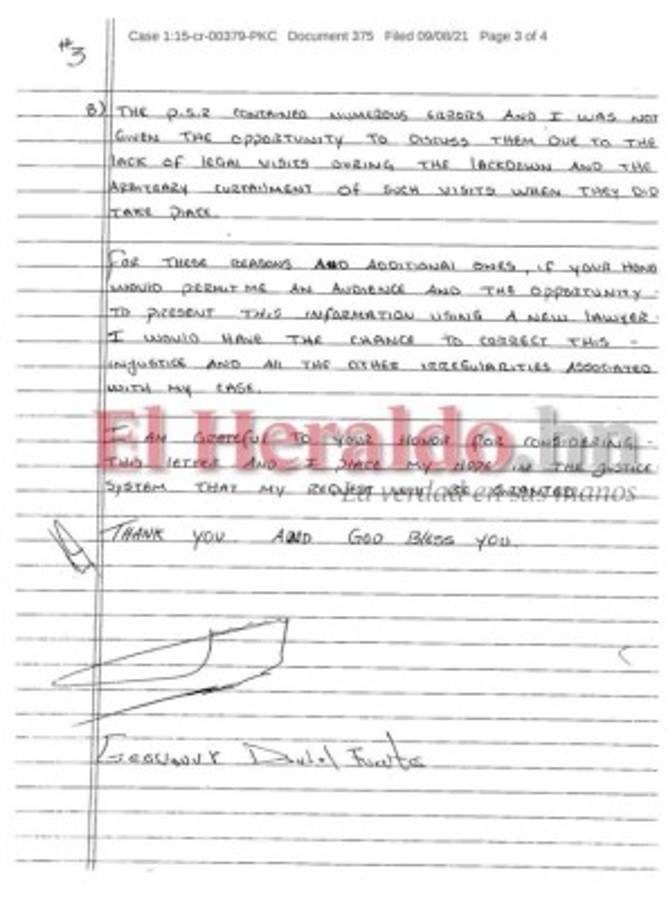 Case 1:15-cr-00379-PKC Document 375 Filed 09/08/21 Page 3 of 4
#3
8) THE P.S.R CONTAINED NUMEROUS ERRORS AND I WAS NOT
GIVEN THE OPPORTUNITY TO DISCUSS THEM DUE TO THE
LACK OF LEGAL VISITS DURING THE LOCKDOWN AND THE
ARBITRARY CURTAILMENT OF SUCH VISITS WHEN THEY DID
TAKE PLACE.
FOR THESE REASONS AND ADDITIONAL ONES, IF YOUR HONO
WOULD PERMIT ME AN AUDIENCE AND THE OPPORTUNITY
TO PRESENT THIS INFORMATION USING A NEW LAWYER.
I WOULD HAVE THE CHANCE TO CORRECT THIS -
INJUSTICE AND ALL THE OTHER IRREGULARITIES ASSOCIATED
WITH MY CASE.
El Heraldo.hn
I AM GRATEFUL TO YOUR HONOR FOR CONSIDERING -
THIS LETTER AND I PLACE MY HOPE IN THE JUSTICE
SYSTEM THAT MY REQUEST WILL BE GRANTED
La verdad en sus manos
THANK YOU. AND GOD BLESS YOU.